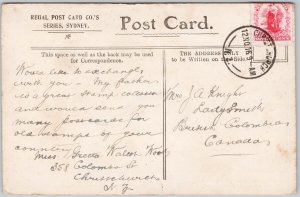 REGAL POST CARD CO.'S
SERIES, SYDNEY.
Post Card.
This space as well as the back may be used for
Correspondence.
THE ADDRESS ONLY
to be Written on this Side.
Would like to exchange
with you. My Father
is a great Stamp collector
and would send you
many postcards for
old stamps of your
country.
Miss Greeta Walton Wood
358 Colombo St
Christchurch
N.Z
Mrs J A Knight
LadySmith
British Columbia
Canada